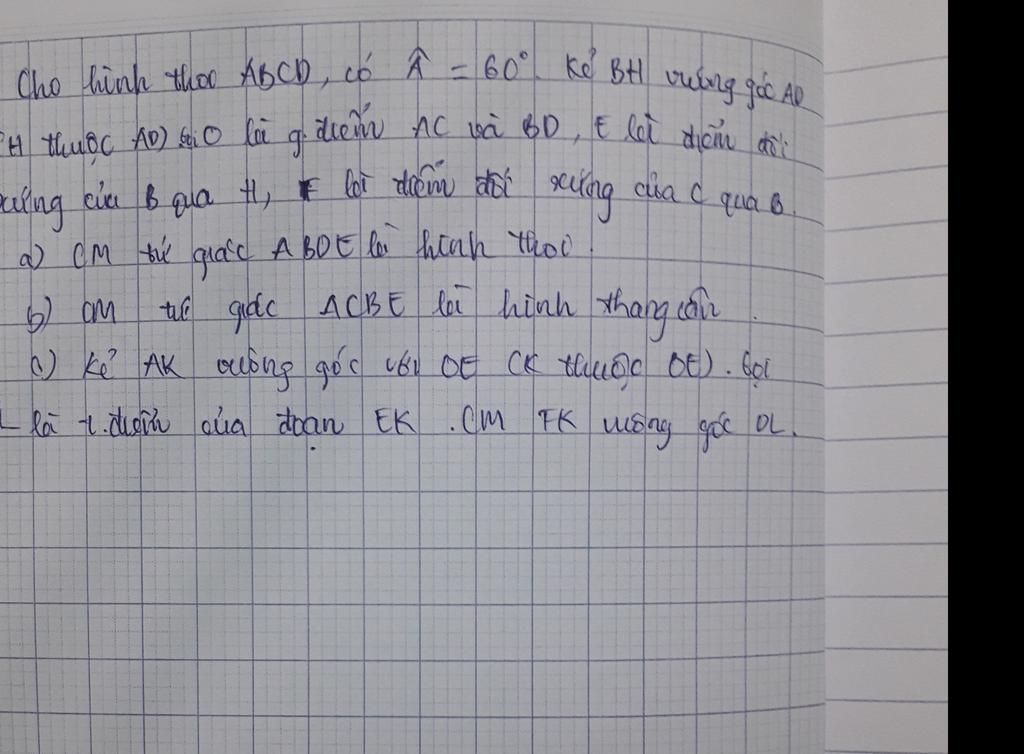 Cho hình thoi ABCD, có Â = 60°. Kẻ BH vuông góc AD
(H thuộc AD) gọi O là g.điểm AC và BD, E là điểm đối
xứng của B qua H, F là điểm đối xứng của C qua B.
a) CM tứ giác ABDE là hình thoi.
b) CM tứ giác ACBE là hình thang cân.
c) Kẻ AK vuông góc với OE (K thuộc OE). Gọi
L là t.điểm của đoạn EK. CM FK vuông góc OL.